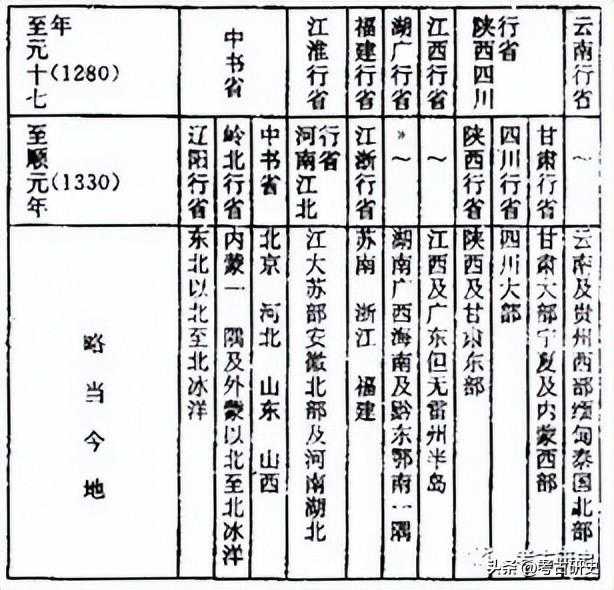 至元十七年(1280)
中书省
江淮行省
福建行省
湖广行省
江西行省
陕西四川行省
云南行省
至顺元年(1330)
辽阳行省
岭北行省
中书省
河南江北行省
江浙行省
〃～
～
陕西行省
四川行省
甘肃行省
～
略当今地
东北以北至北冰洋
内蒙一隅及外蒙以北至北冰洋
北京 河北 山东 山西
江苏大部安徽北部及河南湖北
苏南 浙江 福建
湖南广西海南及黔东鄂南一隅
江西及广东但无雷州半岛
陕西及甘肃东部
四川大部
甘肃大部宁夏及内蒙西部
云南及贵州西部缅甸泰国北部
头条@考古研史